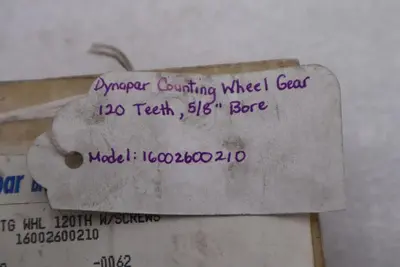 Dynapar Counting Wheel Gear
120 Teeth, 5/8" Bore
Model: 16002600210
TG WHL 120TH W/SCREWS
16002600210
-0062